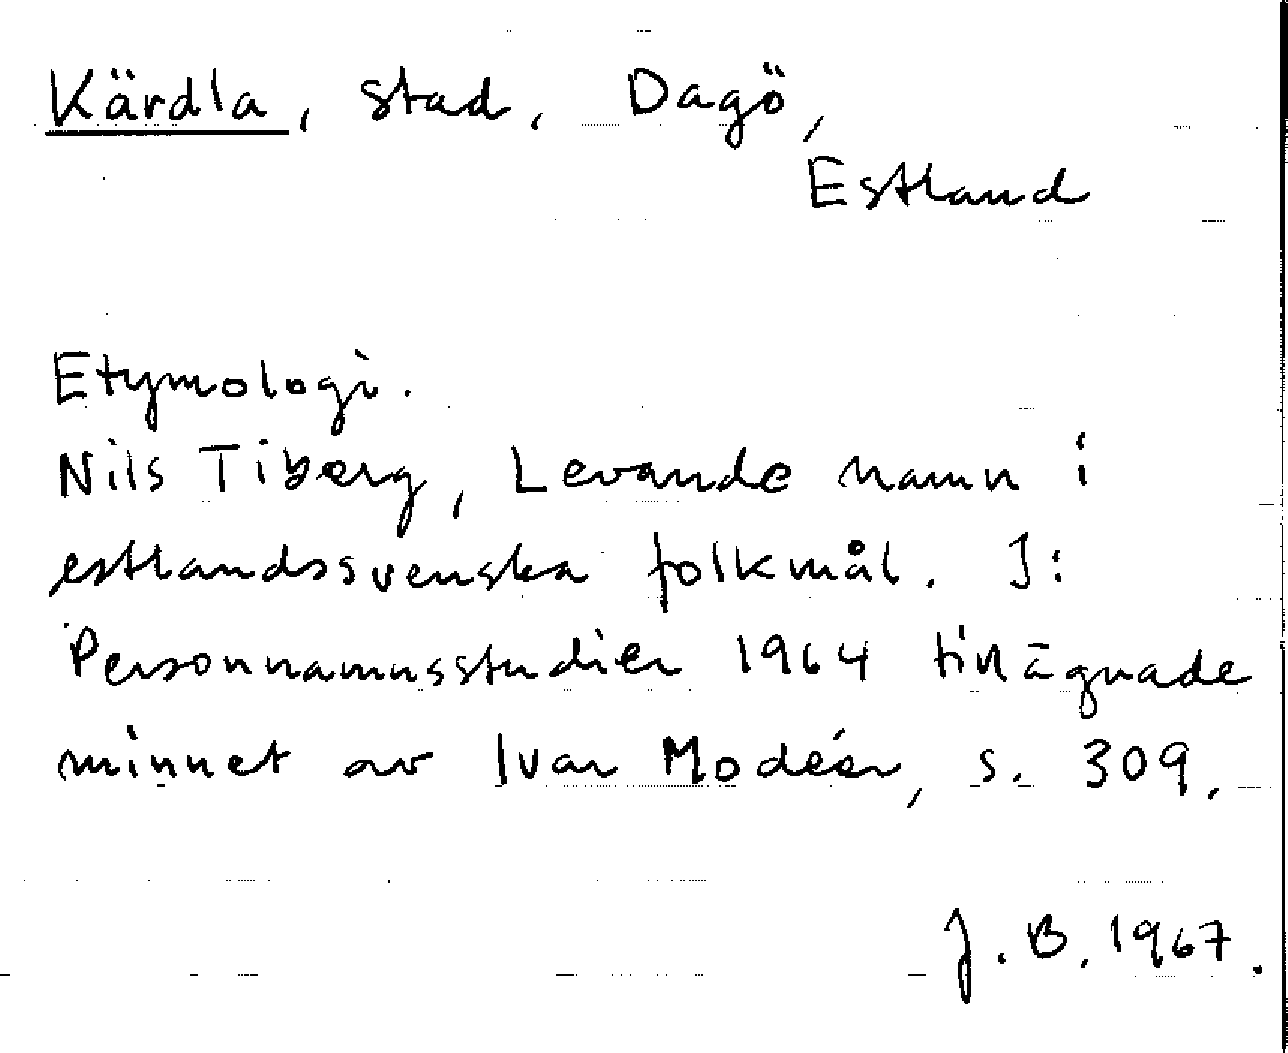 Kärdla, stad, Dagö,
Estland
Etymologi.
Nils Tiberg, Levande namn i
estlandssvenska folkmål. I:
Personnamnsstudier 1964 tillägnade
minnet av Ivar Modéer, s. 309.
J. B. 1967.